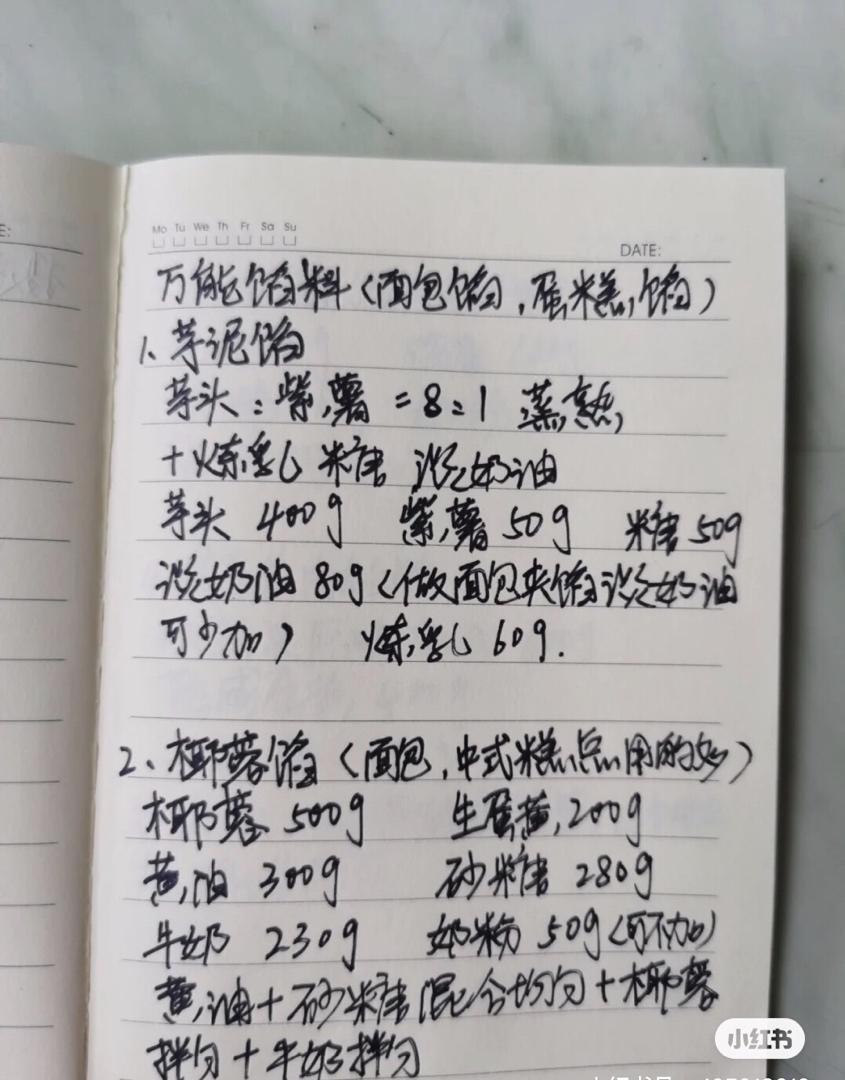 E:
Mo Tu We Th Fr Sa Su
DATE:
万能馅料(面包馅,蛋糕馅)
1、芋泥馅
芋头:紫薯=8:1 蒸熟
+炼乳 糖 淡奶油
芋头 400g 紫薯 50g 糖 50g
淡奶油 80g(做面包夹馅淡奶油
可少加) 炼乳 60g.
2、椰蓉馅(面包,中式糕点用的多)
椰蓉 500g 生蛋黄 200g
黄油 300g 砂糖 280g
牛奶 230g 奶粉 50g(可不加)
黄油+砂糖混合均匀+椰蓉
拌匀+牛奶拌匀
小红书